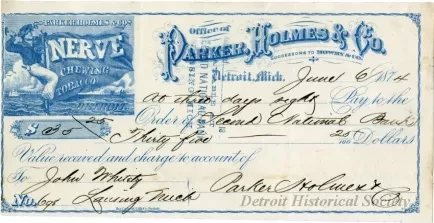 PARKER, HOLMES & CO'S
NERVE
CHEWING
TOBACCO
DETROIT
Office of
PARKER, HOLMES & Co.
SUCCESSORS TO
Detroit, Mich. June 6 1874
At three days sight Pay to the
$ 35 25 Order of Second National Bank
Thirty five 25 100 Dollars
Value received and charge to account of
To John
No. Lansing Mich Parker Holmes & Co
Detroit Historical Society